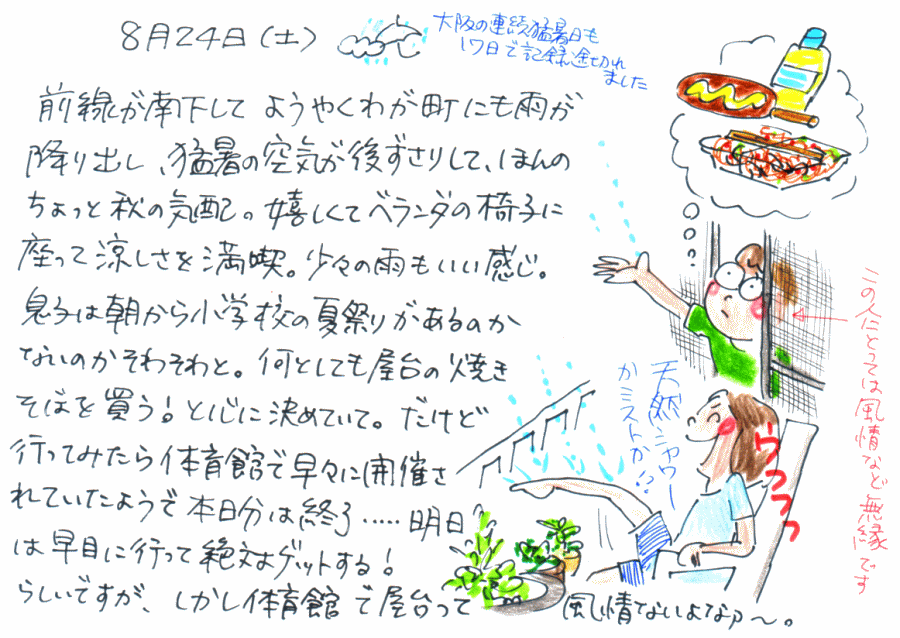 8月24日(土)
大阪の連続猛暑日も
17日で記録途切れ
ました
前線が南下して ようやくわが町にも雨が
降り出し、猛暑の空気が後ずさりして、ほんの
ちょっと秋の気配。嬉しくてベランダの椅子に
座って涼しさを満喫。少々の雨もいい感じ。
息子は朝から小学校の夏祭りがあるのか
ないのかそわそわと。何としても屋台の焼き
そばを買う!と心に決めていて。だけど
行ってみたら体育館で早々に開催さ
れていたようで本日分は終了.....明日
は早目に行って絶対ゲットする!
らしいですが、しかし体育館で屋台って
風情ないよなァ〜。
天然シャワー
かミストか!?
うふふふ
この人にとっては風情など無縁です